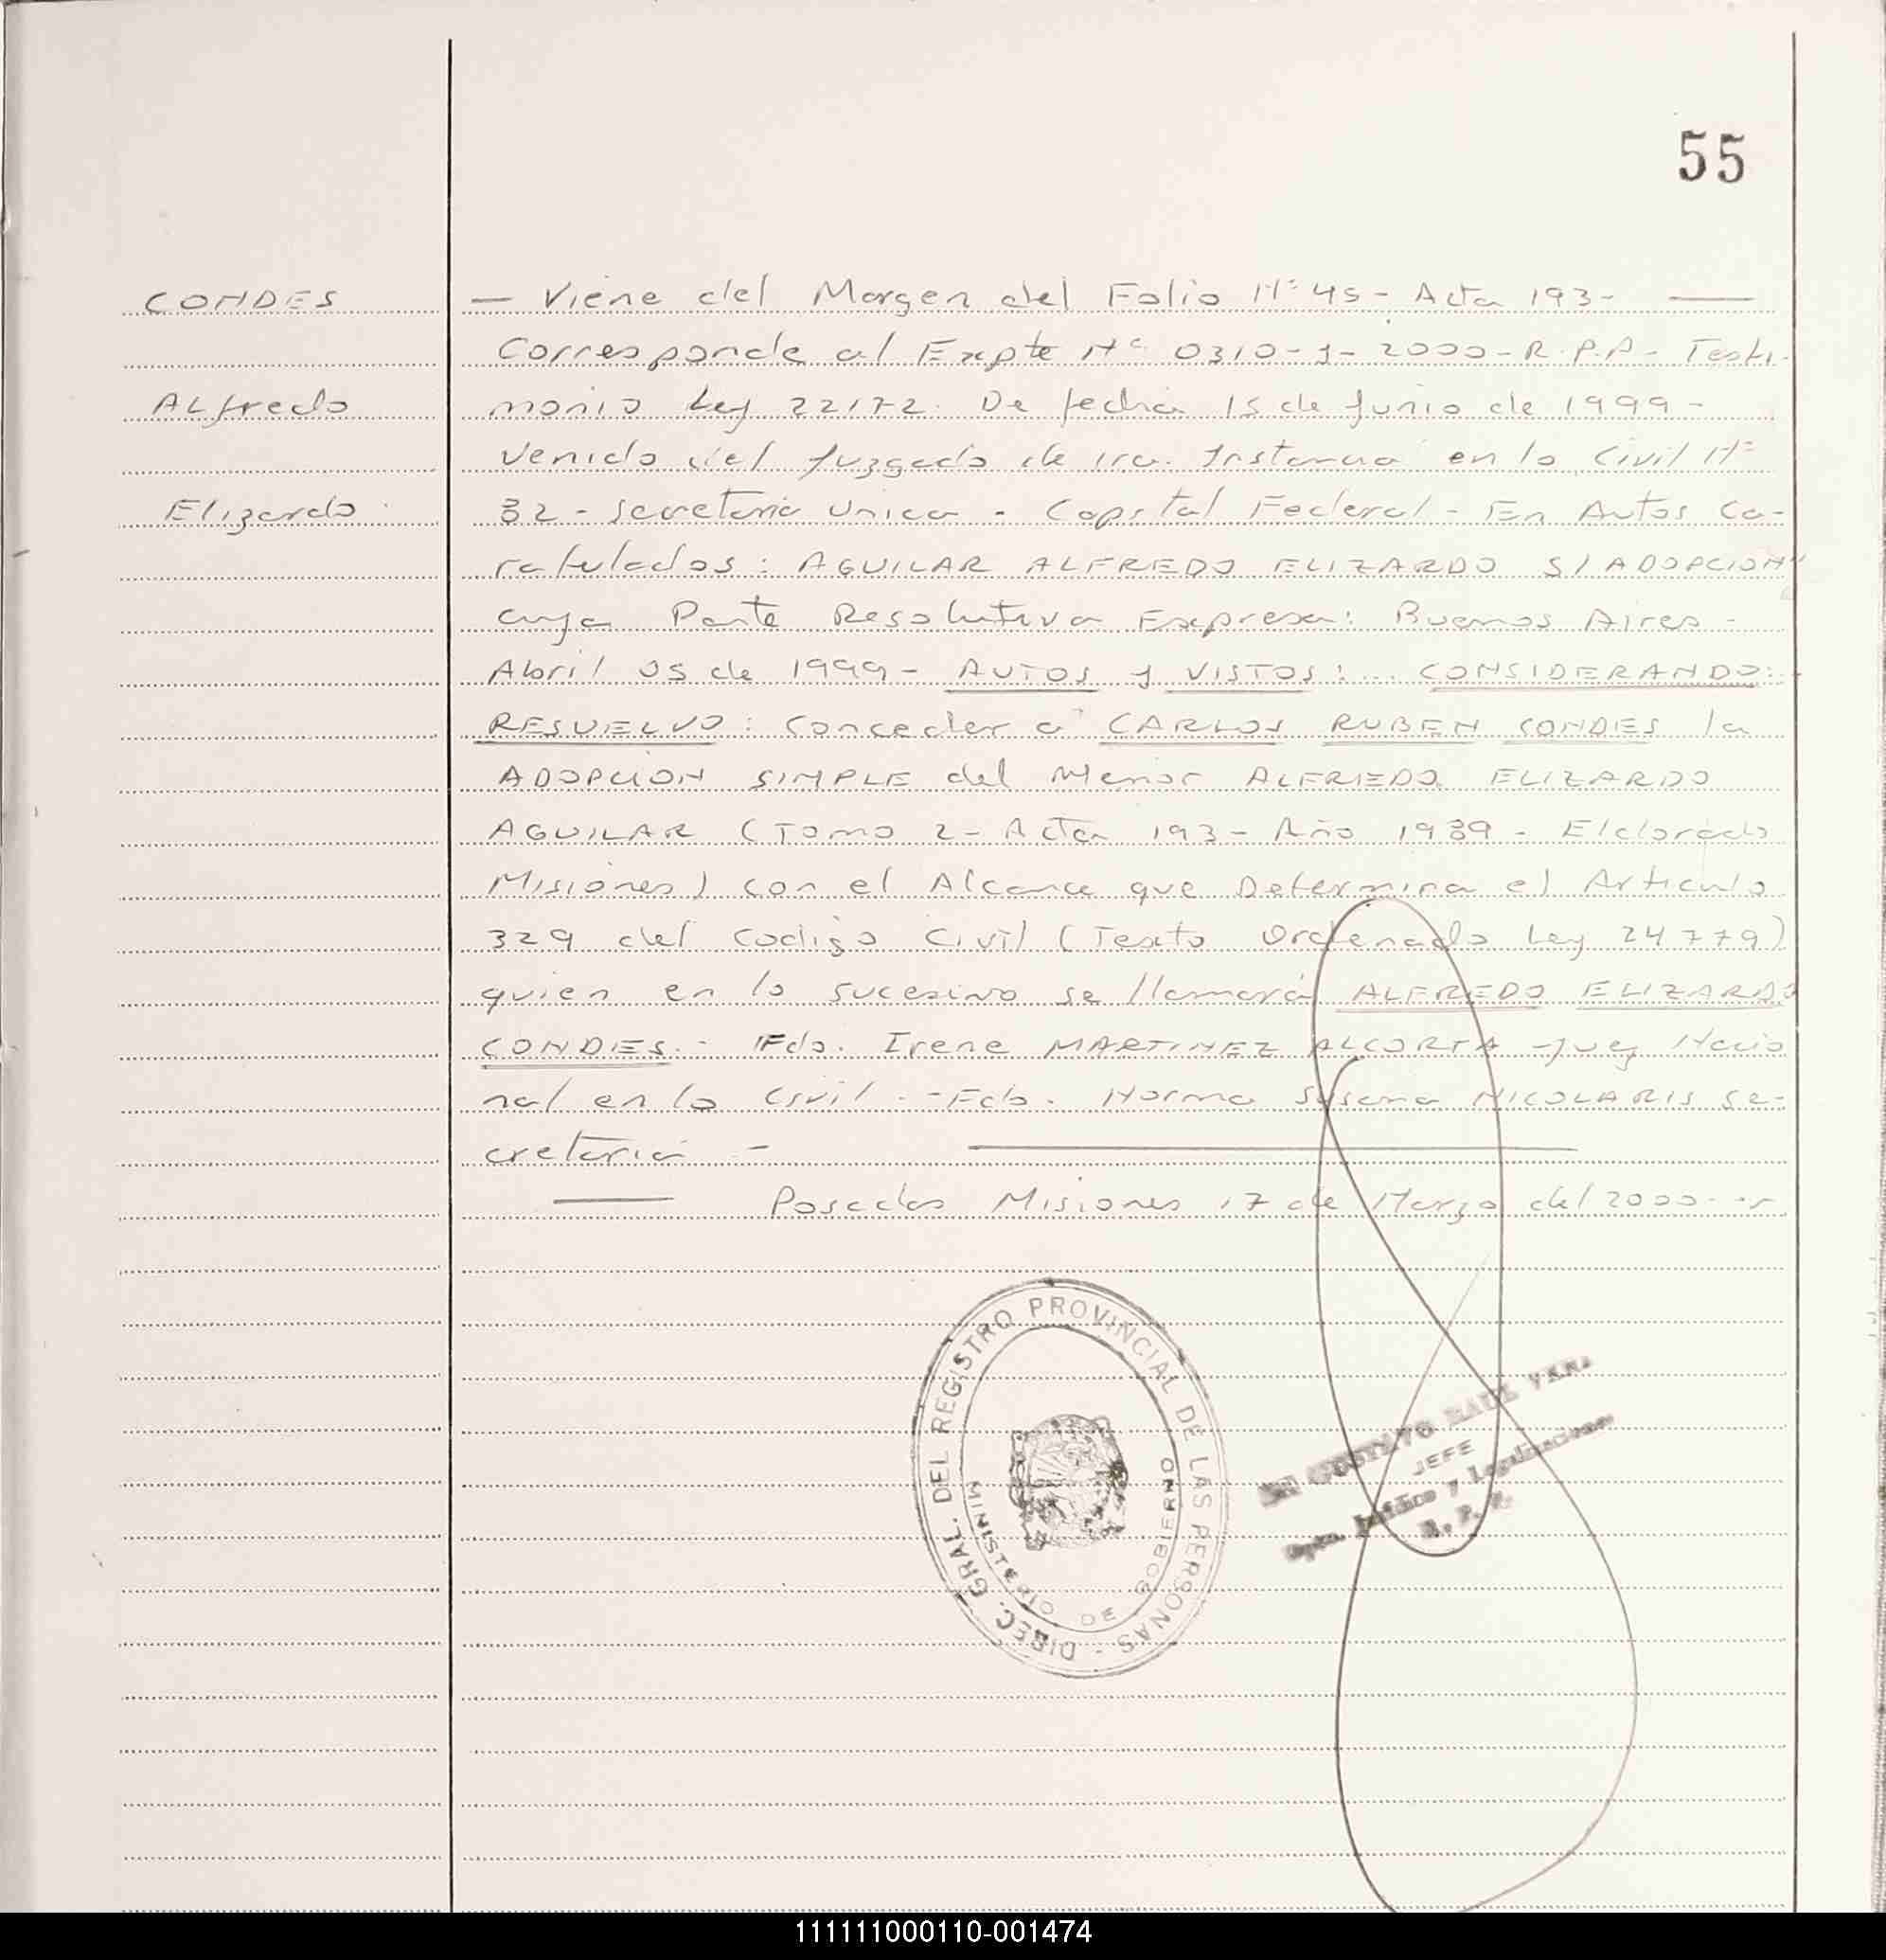 55
CONDES
Alfredo
Elizardo
— Viene del Margen del Folio Nº 45 - Acta 193 - —
Corresponde al Expte Nº 0310-Y-2000-R.P.P.- Testi-
monio Ley 22172. De fecha 15 de Junio de 1999 -
Venido del Juzgado de 1ra. Instancia en lo Civil Nº
32 - Secretaria Unica - Capital Federal - En Autos Ca-
ratulados: AGUILAR ALFREDO ELIZARDO S/ ADOPCION"
cuya Parte Resolutiva Expresa: Buenos Aires -
Abril 05 de 1999 - AUTOS y VISTOS: ... CONSIDERANDO:
RESUELVO: Conceder a CARLOS RUBEN CONDES la
ADOPCION SIMPLE del Menor ALFREDO ELIZARDO
AGUILAR (Tomo 2 - Acta 193 - Año 1989 - Eldorado
Misiones) con el Alcance que Determina el Articulo
329 del Codigo Civil (Texto Ordenado Ley 24779)
quien en lo sucesivo se llamará ALFREDO ELIZARDO
CONDES.- Fdo. Irene MARTINEZ ALCORTA - Juez Nacio
nal en lo Civil.- Fdo. Norma Susana NICOLARIS Se-
cretaria -
— Posadas Misiones 17 de Marzo del 2000
DIREC. GRAL. DEL REGISTRO PROVINCIAL DE LAS PERSONAS -
MINISTERIO DE GOBIERNO
JEFE
Dpto. Jurídico y Legalizaciones
R. P. P.
111111000110-001474